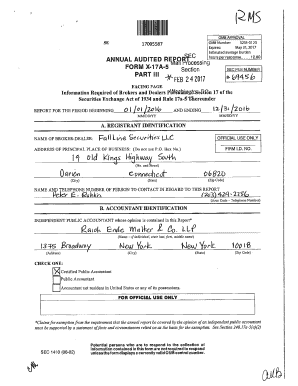 RMS
17005587
OMB APPROVAL
OMB Number: 3235-0123
Expires: May 31, 2017
Estimated average burden
hours per response......12.00
SEC FILE NUMBER
8-69456
ANNUAL AUDITED REPORT
FORM X-17A-5
PART III
SEC
Mail Processing
Section
FEB 24 2017
Washington DC
FACING PAGE
Information Required of Brokers and Dealers Pursuant to Section 17 of the
Securities Exchange Act of 1934 and Rule 17a-5 Thereunder
REPORT FOR THE PERIOD BEGINNING 01/01/2016 AND ENDING 12/31/2016
MM/DD/YY MM/DD/YY
A. REGISTRANT IDENTIFICATION
NAME OF BROKER-DEALER: Fall Line Securities LLC
OFFICIAL USE ONLY
ADDRESS OF PRINCIPAL PLACE OF BUSINESS: (Do not use P.O. Box No.)
FIRM I.D. NO.
19 Old Kings Highway South
(No. and Street)
Darien Connecticut 06820
(City) (State) (Zip Code)
NAME AND TELEPHONE NUMBER OF PERSON TO CONTACT IN REGARD TO THIS REPORT
Peter E. (203)424-2256
(Area Code - Telephone Number)
B. ACCOUNTANT IDENTIFICATION
INDEPENDENT PUBLIC ACCOUNTANT whose opinion is contained in this Report*
Raich Ende Malter & Co. LLP
(Name - if individual, state last, first, middle name)
1375 Broadway New York New York 10018
(Address) (City) (State) (Zip Code)
CHECK ONE:
Certified Public Accountant
Public Accountant
Accountant not resident in United States or any of its possessions.
FOR OFFICIAL USE ONLY
*Claims for exemption from the requirement that the annual report be covered by the opinion of an independent public accountant
must be supported by a statement of facts and circumstances relied on as the basis for the exemption. See Section 240.17a-5(e)(2)
Potential persons who are to respond to the collection of
information contained in this form are not required to respond
unless the form displays a currently valid OMB control number.
SEC 1410 (06-02)